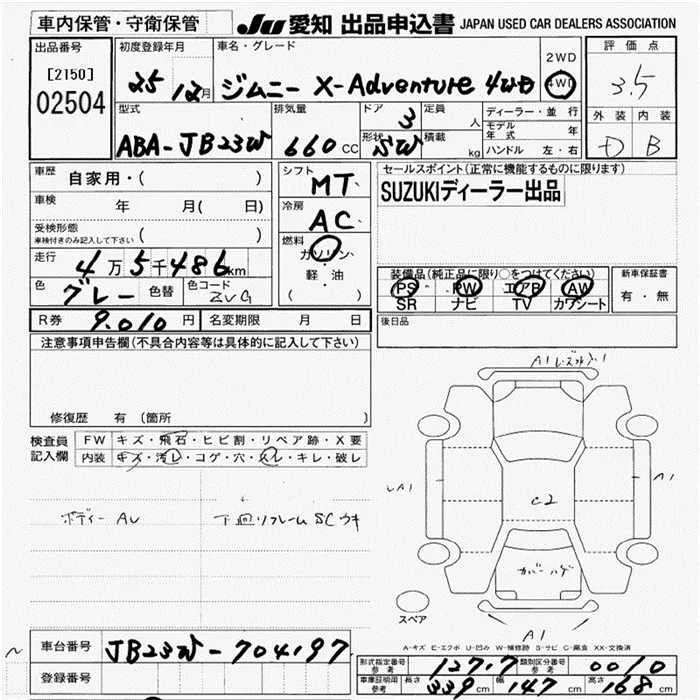 車内保管・守衛保管
JU 愛知 出品申込書 JAPAN USED CAR DEALERS ASSOCIATION
出品番号 [2150] 02504
初度登録年月 25 12月
車名・グレード ジムニー X-Adventure 4WD
2WD 4WD
評価点 3.5
外装 D 内装 B
型式 ABA-JB23W
排気量 660 CC
ドア 3
形状 SW
定員 人
積載 kg
ディーラー・並行
モデル年式 年
ハンドル 左・右
車歴 自家用・( )
車検 年 月( 日)
受検形態 車検付きのみ記入して下さい ( )
走行 4万5千486km
色 グレー 色替 色コード ZVG
R券 9.010円 名変期限 月 日
シフト MT
冷房 AC
燃料 ガソリン・軽油 ( )
セールスポイント(正常に機能するものに限ります)
SUZUKIディーラー出品
装備品(純正品に限り○をつけてください)
PS PW エアB AW
SR ナビ TV カワシート
新車保証書 有・無
後日品
注意事項申告欄(不具合内容等は具体的に記入して下さい)
修復歴 有(箇所 )
検査員記入欄
FW キズ・飛石・ヒビ割・リペア跡・X要
内装 キズ・汚レ・コゲ・穴・スレ・キレ・破レ
ボディー AU
下廻リフレーム SC ウキ
A1
A1
A1
C2
カバーハゲ
A1
スペア
A-キズ E-エクボ U-凹み W-補修跡 S-サビ C-腐食 XX-交換済
車台番号 JB23W-704197
登録番号
形式指定番号 参考 12717 類別区分番号 参考 0010
車庫証明用 参考 長さ 339cm 幅 147cm 高さ 168cm